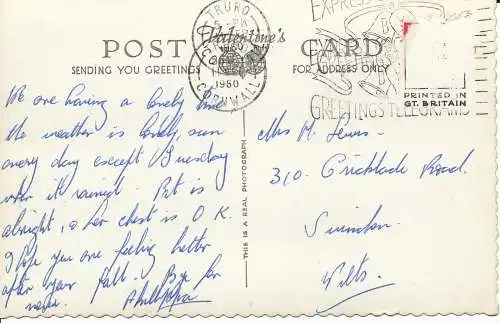 POST CARD
Valentine's
SENDING YOU GREETINGS
FOR ADDRESS ONLY
TRURO
1960
CORNWALL
EXPRESS
GREETINGS TELEGRAMS
PRINTED IN
GT. BRITAIN
THIS IS A REAL PHOTOGRAPH
We are having a lovely time
the weather is lovely, sun
every day except Tuesday
when it rained. Pat is
alright, & her chest is O.K.
I hope you are feeling better
after your fall. Bye for
now.
Mrs M. Lewis.
310. Cricklade Road.
Swindon.
Wilts.